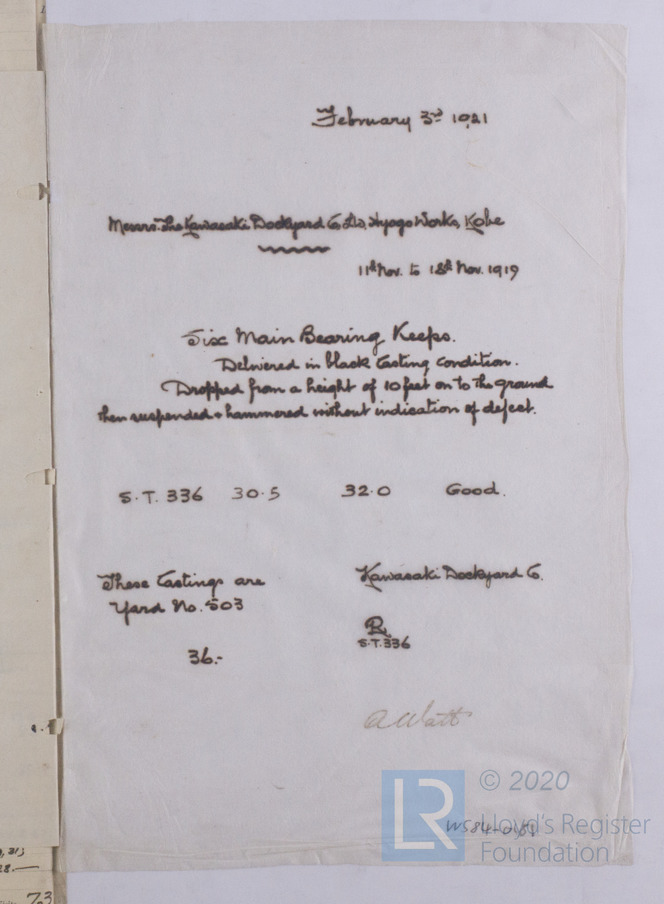 February 3rd 1921
Messrs. The Kawasaki Dockyard Co. Ltd, Hyogo Works, Kobe
11th Nov. to 18th Nov. 1919
Six Main Bearing Keeps.
Delivered in black casting condition.
Dropped from a height of 10 feet on to the ground
then suspended & hammered without indication of defect.
S.T. 336 30.5 32.0 Good.
These castings are
Yard No. 503
36.-
Kawasaki Dockyard Co.
R.
S.T. 336
A Watt
© 2020
LR
Lloyd's Register
Foundation
28.-
73